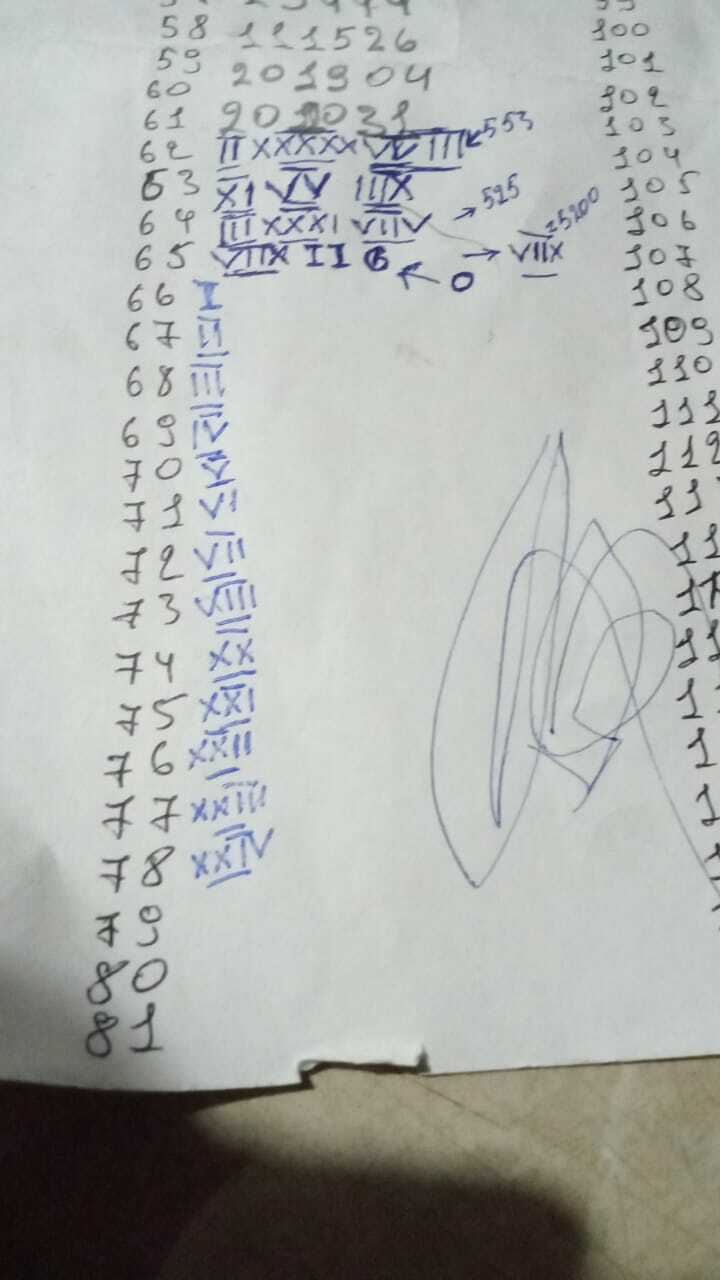 58 111526
59 201904
60
61 202031
62 II XXXXX VV III 553
63 XI VV IIIX
64 III XXXI VIIV → 525
65 VIIX II 6 ← 0 → VIIX =25200
66 I
67 II
68 III
69 IV
70 V
71 VI
72 VII
73 VIII
74 XX
75 XXI
76 XXII
77 XXIII
78 XXIV
79
80
81
100
101
102
103
104
105
106
107
108
109
110
111
112